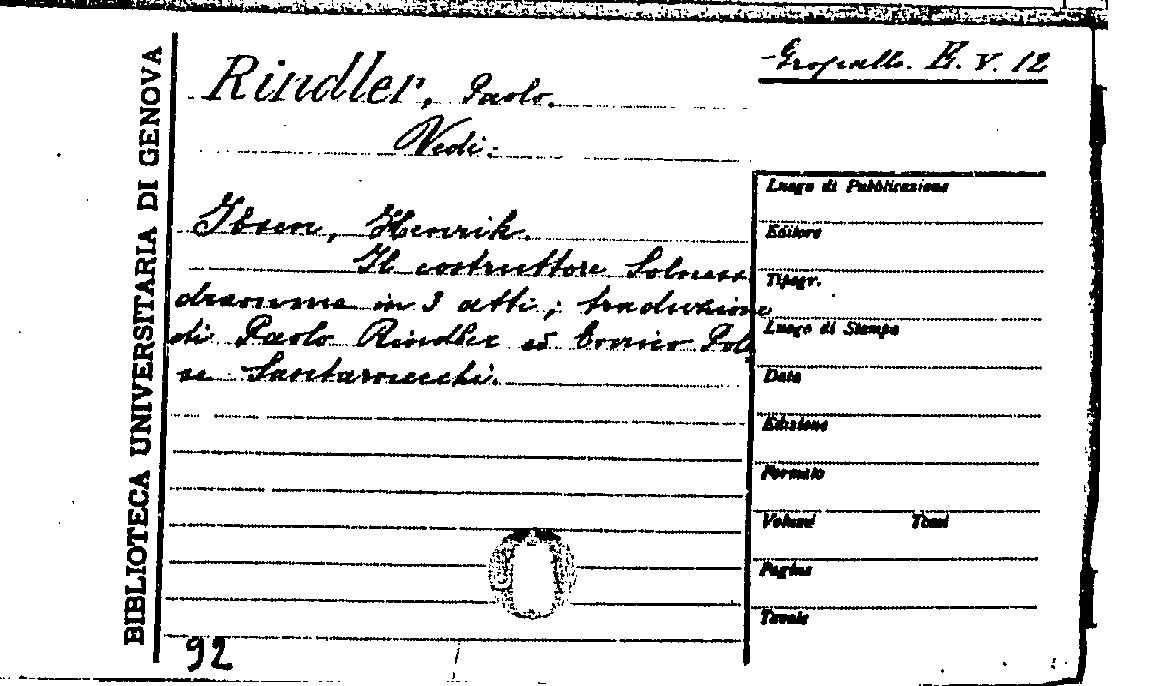 Gropallo. E. V. 12
Rindler, Paolo.
Vedi:
Ibsen, Henrik.
Il costruttore Solness
dramma in 3 atti; traduzione
di Paolo Rindler ed Enrico Pol
se Santarnecchi.
92
BIBLIOTECA UNIVERSITARIA DI GENOVA
Luogo di Pubblicazione
Editore
Tipogr.
Luogo di Stampa
Data
Edizione
Formato
Volumi Tomi
Pagine
Tavole